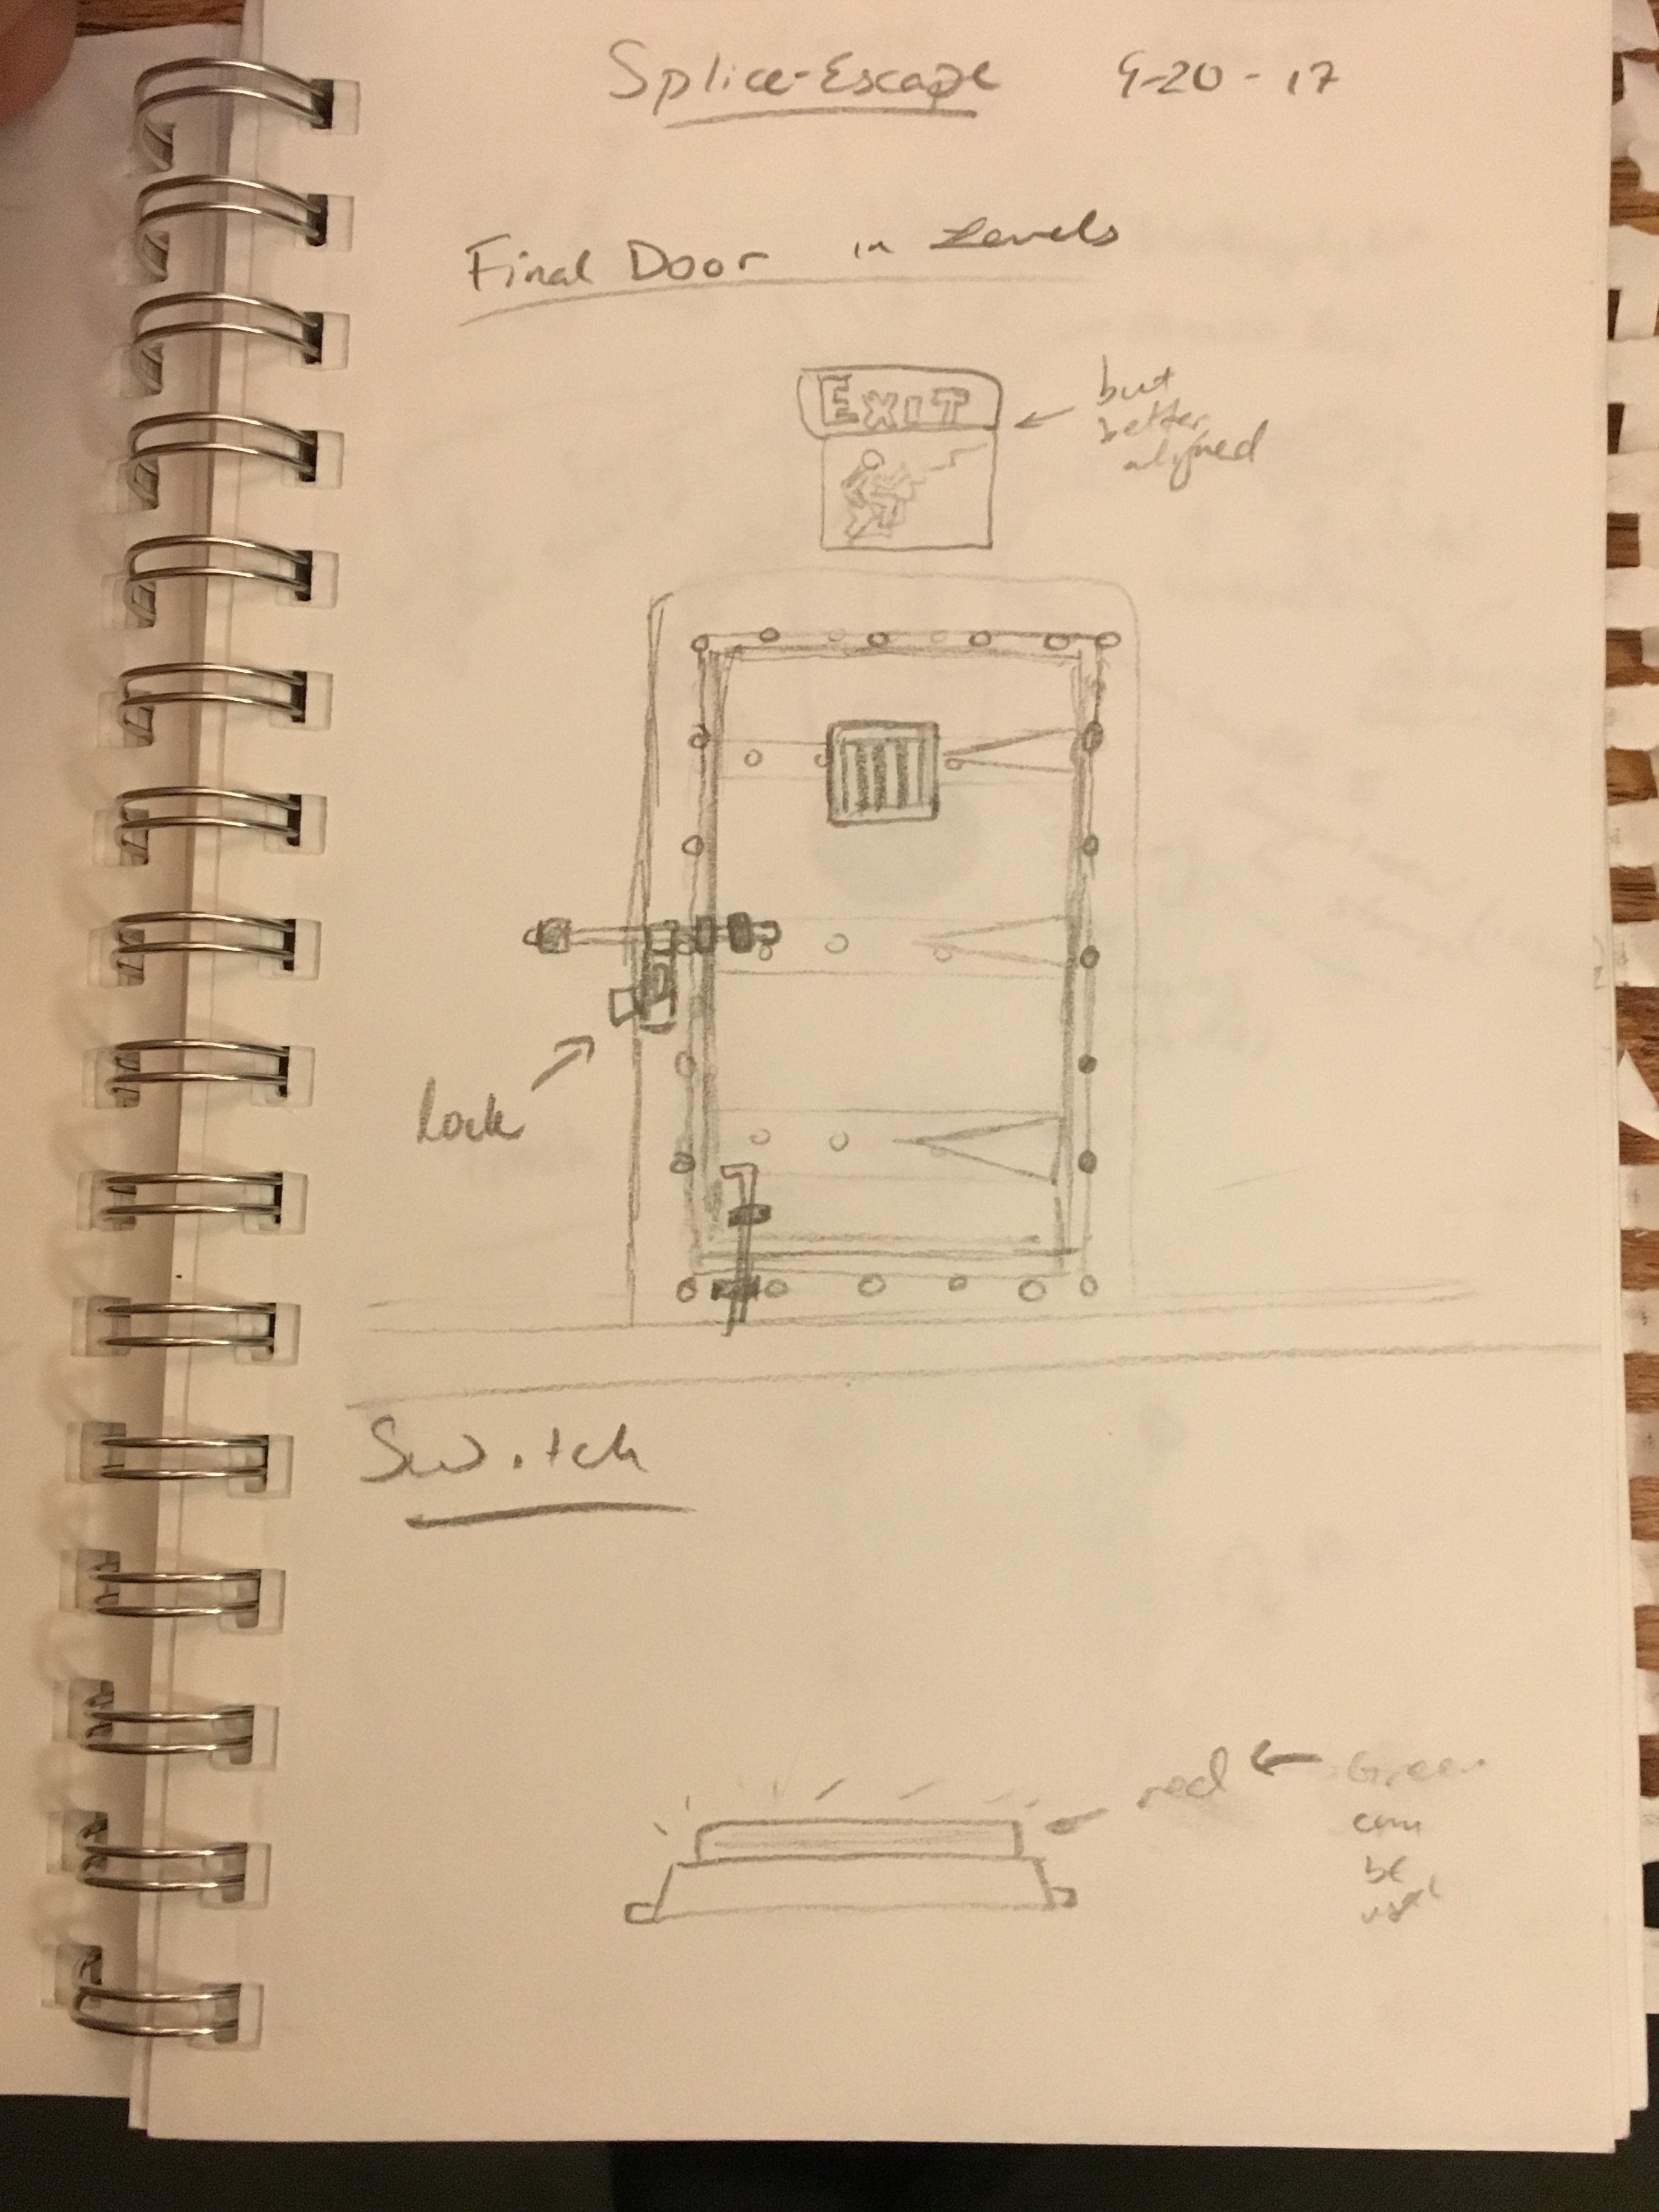 Splice-Escape 9-20-17
Final Door in Levels
EXIT
but
better
aligned
Lock
Switch
red ← Green
can
be
used